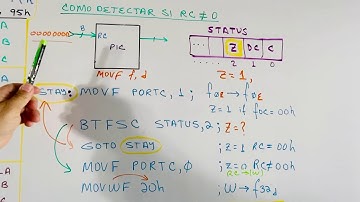 COMO DETECTAR SI RC≠0
95h
00000000
8
RC
PIC
MOVF f,d
STATUS
Z DC C
2 1 0
Z=1,
STAY: MOVF PORTC,1; 
Z=1 if f0C=00h
BTFSC STATUS,2; Z=?
GOTO STAY ; Z=1 RC=00h
MOVF PORTC,0 ; Z=0 RC≠00h
RC→(W)
MOVWF 20h ; W→f32d
A
B
C
LA
A
B
C